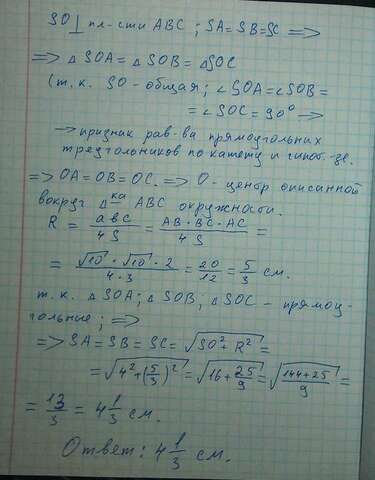 SO⊥ пл-сти ABC ; SA=SB=SC =>
=> △SOA = △SOB = △SOC
(т.к. SO - общая ; ∠SOA=∠SOB=
= ∠SOC = 90° →
→ признак рав-ва прямоугольных
треугольников по катету и гипот-зе.
=> OA=OB=OC. => O - центр описанной
вокруг △ка ABC окружности.
R = abc/4S = AB·BC·AC/4S =
= √10·√10·2/4·3 = 20/12 = 5/3 см.
т.к. △SOA; △SOB; △SOC - прямоу-
гольные ; =>
=> SA = SB = SC = √(SO²+R²) =
= √(4²+(5/3)²) = √(16+25/9) = √((144+25)/9) =
= 13/3 = 4 1/3 см.
Ответ: 4 1/3 см.